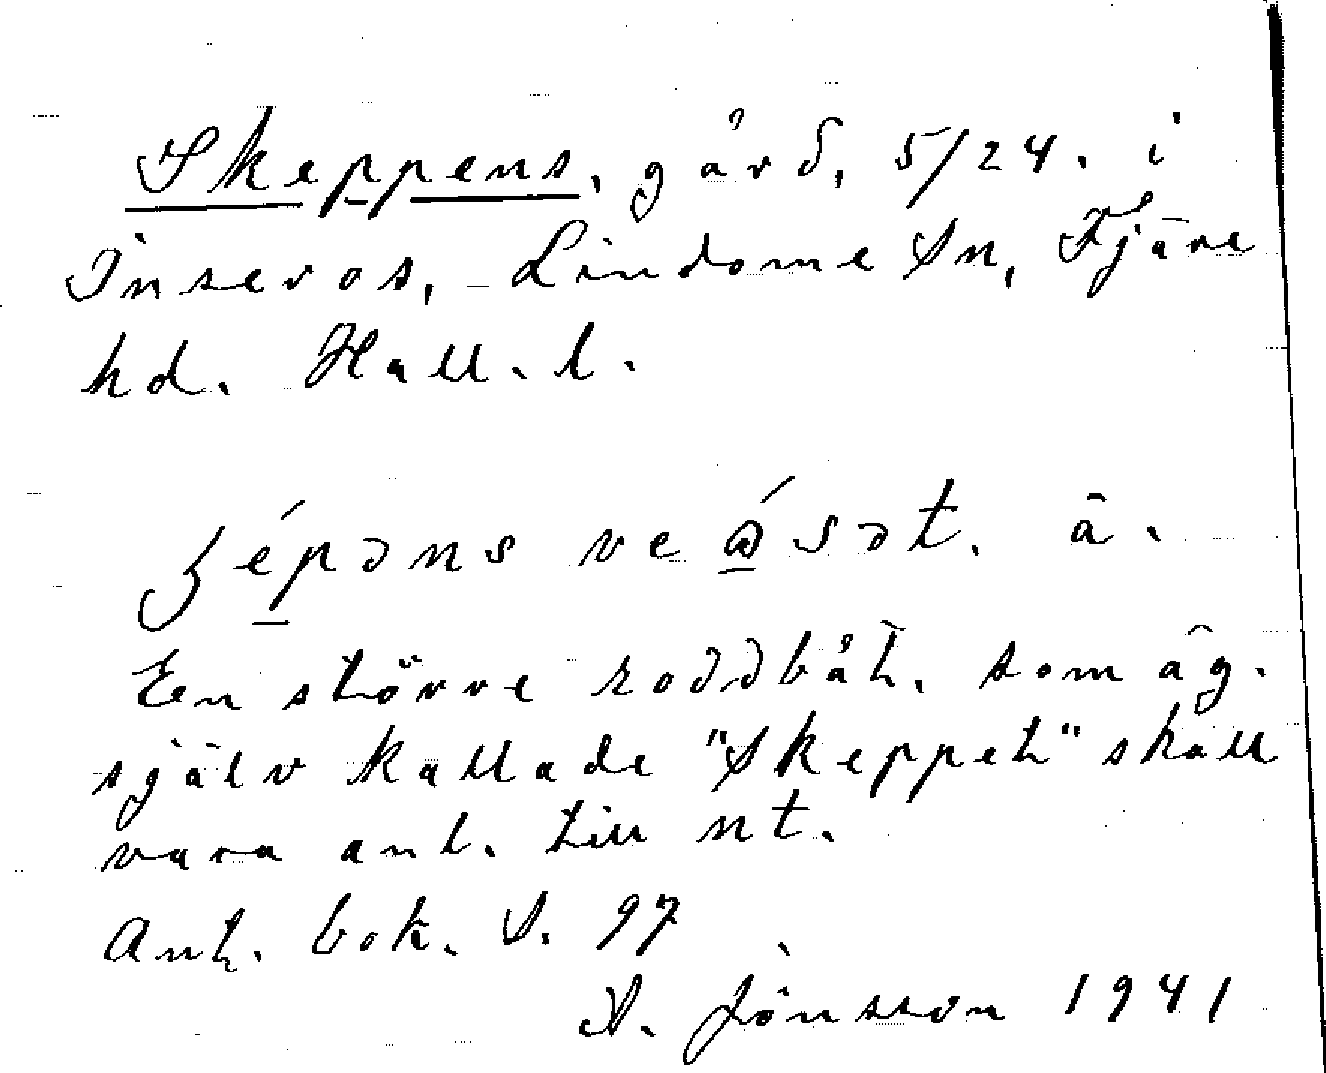 Skeppens, gård, 5/24. i
Inseros, Lindome Sn, Fjäre
hd. Hall. l.
En större roddbåt, som äg.
själv kallade "Skeppet" skall
vara anl. till nt.
Ant. bok. S. 97
A. Jönsson 1941